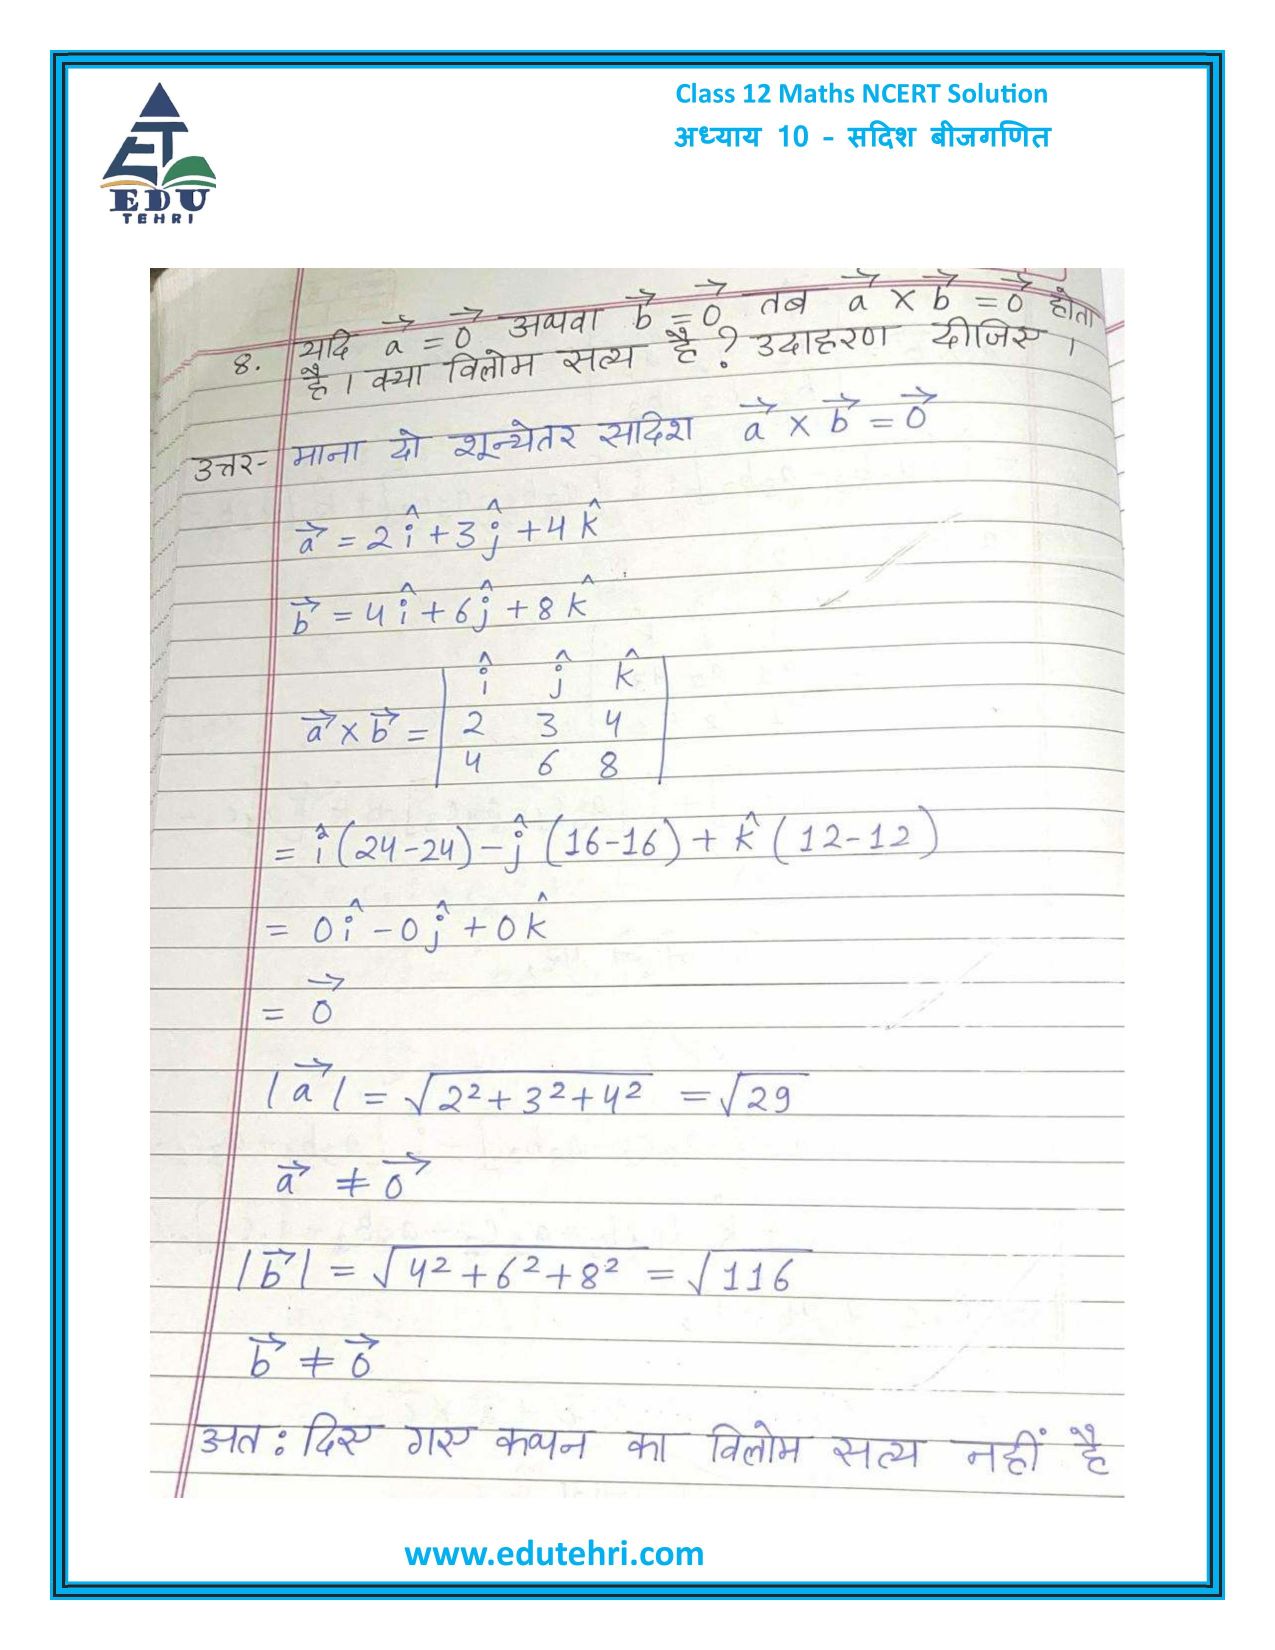 Class 12 Maths NCERT Solution
अध्याय 10 - सदिश बीजगणित
EDU
TEHRI
8. यदि a⃗ = 0⃗ अथवा b⃗ = 0⃗ तब a⃗ × b⃗ = 0⃗ होता
है। क्या विलोम सत्य है? उदाहरण दीजिए।
उत्तर- माना दो शून्येतर सदिश a⃗ × b⃗ = 0⃗
a⃗ = 2î + 3ĵ + 4k̂
b⃗ = 4î + 6ĵ + 8k̂
î ĵ k̂
a⃗ × b⃗ = 2 3 4
4 6 8
= î (24-24) - ĵ (16-16) + k̂ (12-12)
= 0î - 0ĵ + 0k̂
= 0⃗
|a⃗| = √2²+3²+4² = √29
a⃗ ≠ 0⃗
|b⃗| = √4²+6²+8² = √116
b⃗ ≠ 0⃗
अत: दिए गए कथन का विलोम सत्य नहीं है
www.edutehri.com